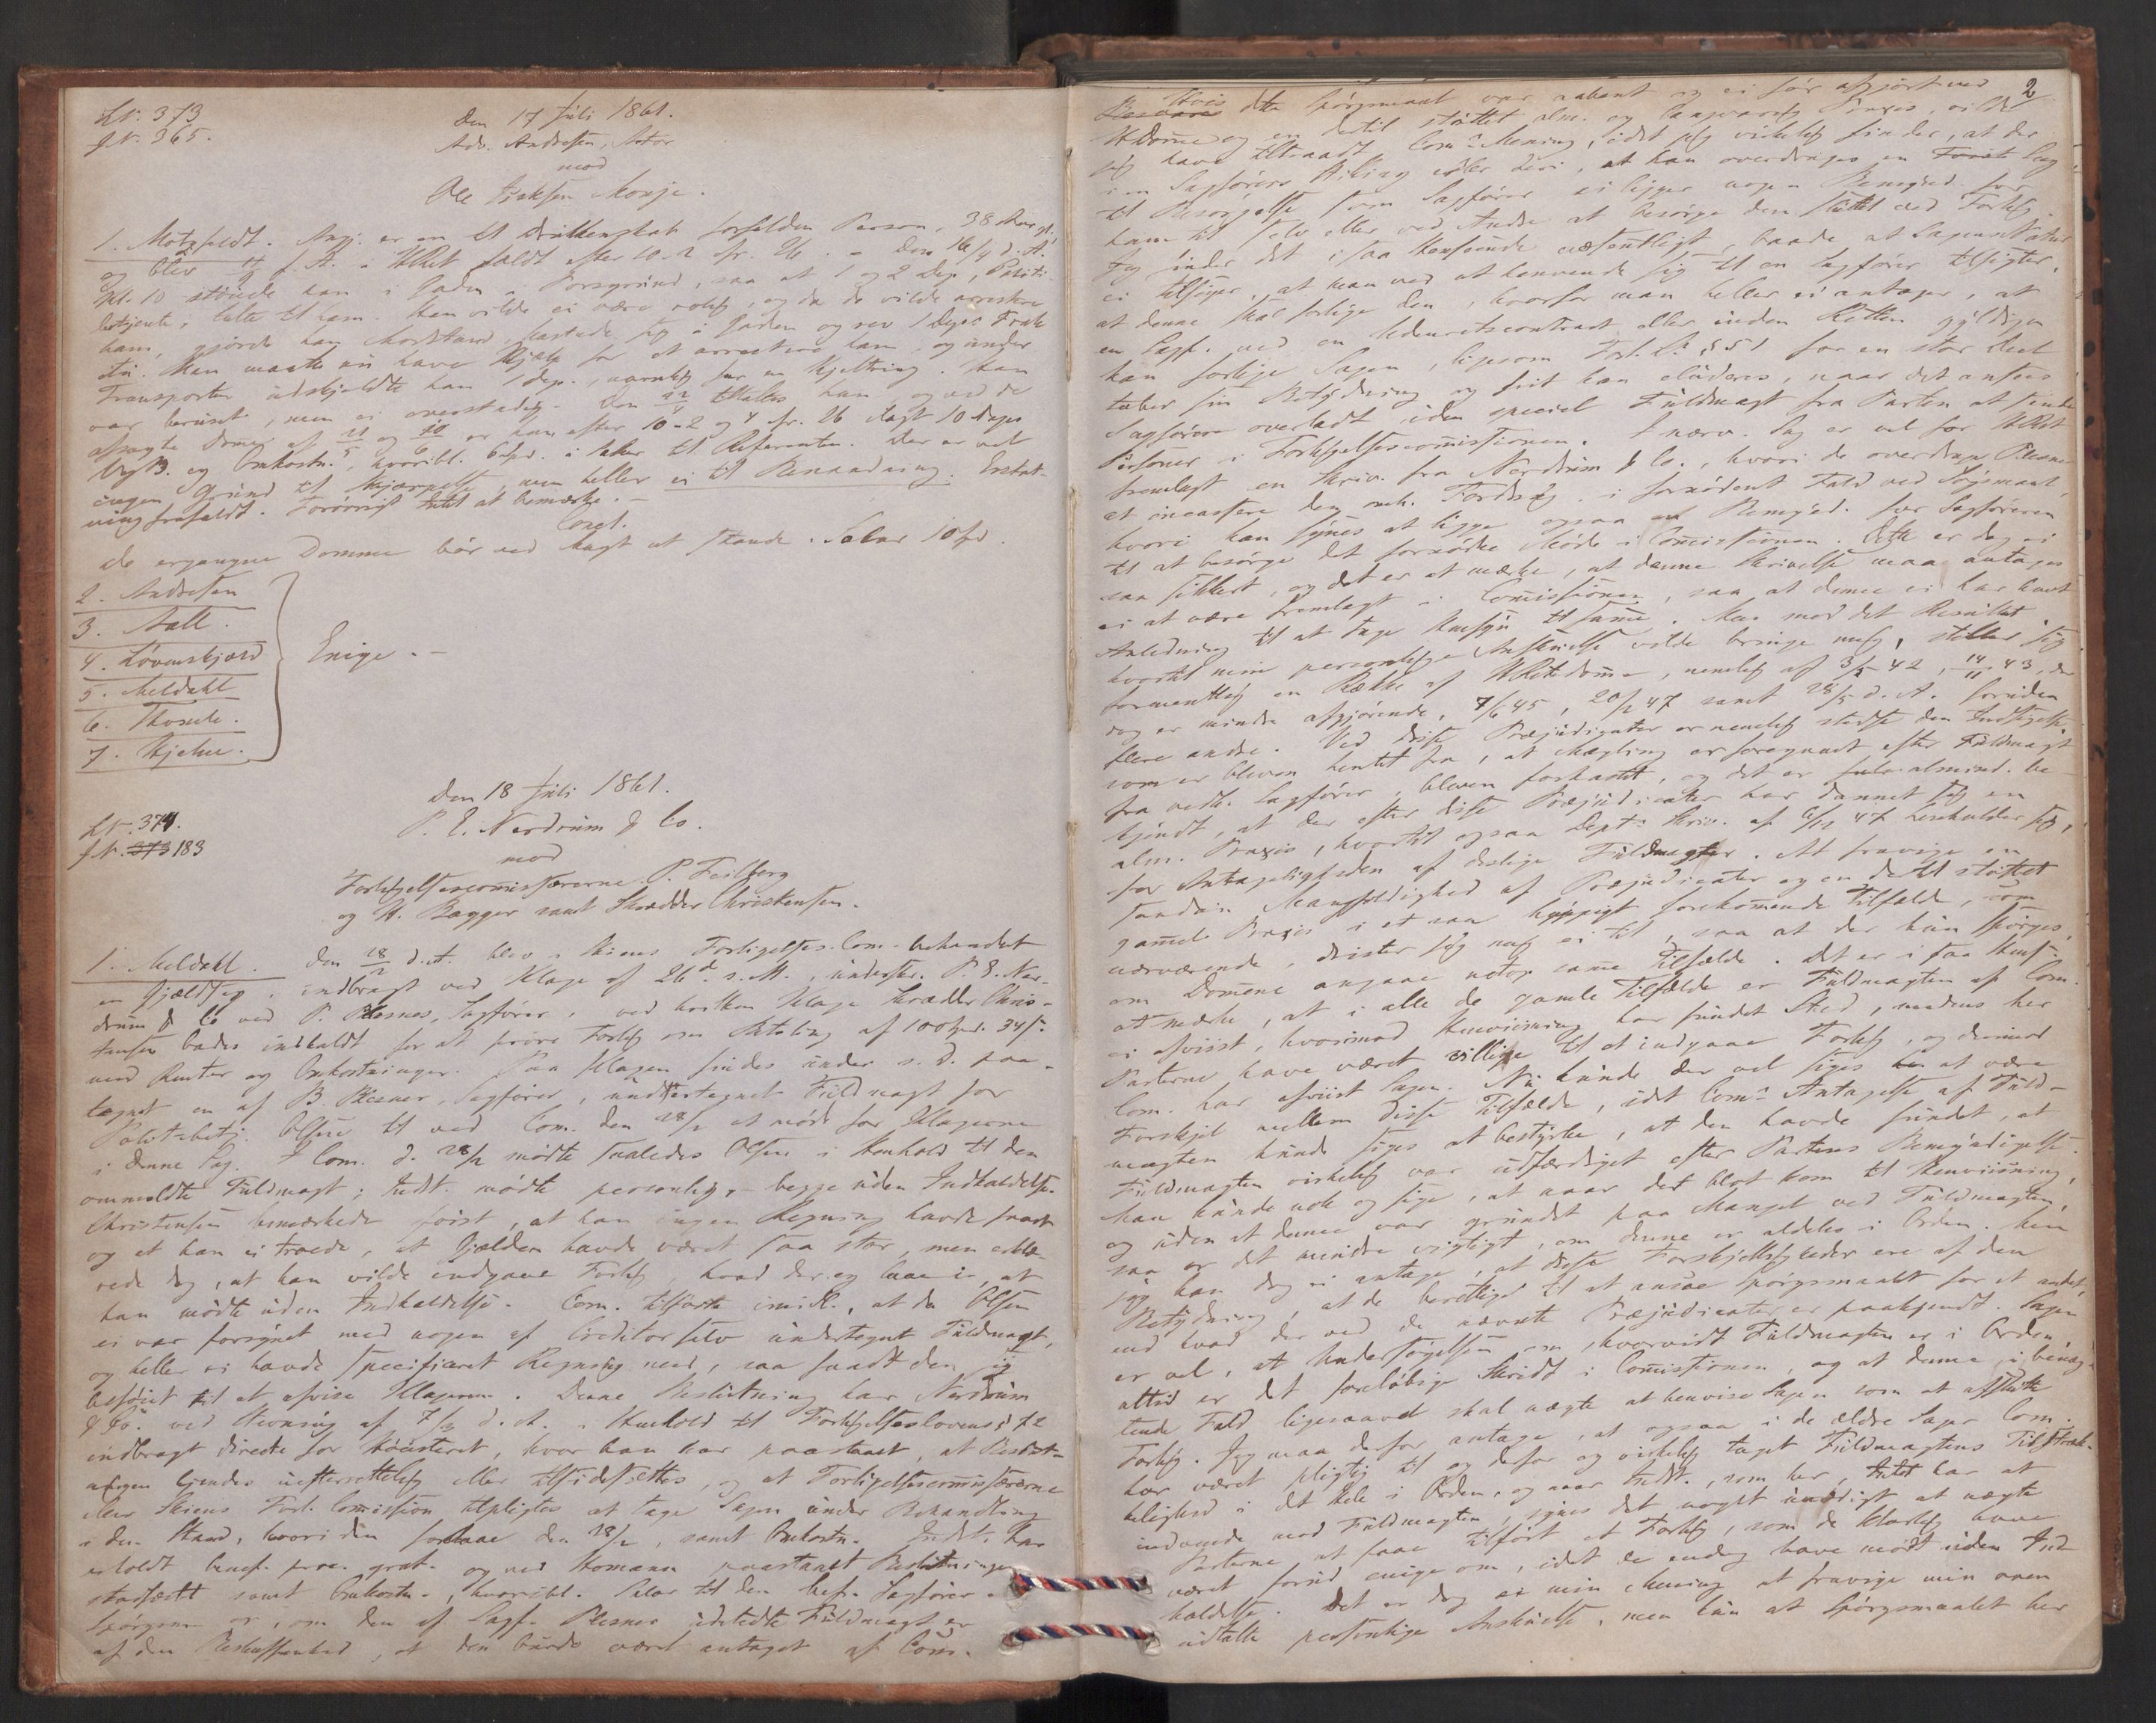 Lt. 373
J.N. 365.
Den 17 Juli 1861.
Adv. Andresen, Actor
mod
Ole Isaksen Monje.
1. Motzfeldt. Ang. er en til Drukkenskab forfalden Person, 38 Aar gl.
og blev
Kl. 10 støiede han i Gaden i Porsgrund, saa at 1 og 2 Dep., Politi-
betjente, talte til ham. Han vilde ei være rolig, og da de vilde arrestere
ham, gjorde han Modstand, kastede sig i Gaden og rev 1 Deps Frak
itu. Man maatte nu have Hjælp for at arrestere ham, og under
Transporten udskjældte han 1 Dep., navnlig for en Kjeltring. Han
var beruset, men ei overstadig.
afsagte Domme af og er han efter 10-2 og 4 cfr. 26 ilagt 10 Dages
V. og B. og Omkostn., hvoribl.
ingen Grund til Skjærpelse, men heller ei til Benaadning. Erstat-
ning frafaldt. Forøvrigt Intet at bemærke. -
Concl.
de ergangne Domme bør ved Magt at stande. Salar 10 Spd.
2. Andresen
3. Aall.
4. Løvenskjold
5. Meldahl
6. Thosele.
7. Hjelm.
Enige. -
Den 18 Juli 1861.
Lt. 374.
J.N. 373 183
P. E. Nordrum & Co.
mod
Forligelsescommissærerne P. Feilberg
og H. Bagger samt Skrædder Christensen.
1. Meldahl. Den 28/2 d. A. blev i Skiens Forligelses-Com. behandlet
en Gjældssag, indbragt ved Klage af 26d s. M., underskr. P. E. Nor-
drum & Co ved P. Plesner, Sagfører, ved hvilken Klage Skrædder Chris-
tensen bades indkaldt for at prøve Forlig om Betaling af 100 Spd. 34 s.
med Renter og Omkostninger. Paa Klagen findes under s. D. paa-
tegnet en af B. Plesner, Sagfører, undertegnet Fuldmagt for
Politibetj. Olsen til ved Com. den 28/2 at møde for Klagerne
i denne Sag. I Com. d. 28/2 mødte saaledes Olsen i Henhold til den
ommeldte Fuldmagt; Indst. mødte personlig, - begge uden Indkaldelse.
Christensen bemærkede først, at han ingen Regning havde faaet
og at han ei troede, at Gjælden havde været saa stor, men erklæ-
rede dog, at han vilde indgaae Forlig, hvad der og laae i, at
han mødte uden Indkaldelse. Com. tilførte imidl., at da Olsen
ei var forsynet med nogen af Creditor selv undertegnet Fuldmagt,
og heller ei havde specificeret Regning med, saa fandt den sig
beføiet til at afvise Klagerne. Denne Beslutning har Nordrum
& Co. ved Stevning af d. A. i Henhold til Forligelseslovens § 72
indbragt directe for Høiesteret, hvor han har paastaaet, at Beslut-
ningen kjendes uefterrettelig eller tilsidesættes, og at Forligelsescommissærerne
eller Skiens Forl. Commission tilpligtes at tage Sagen under Behandling
i den Stand, hvori den forelaae den 28/2, samt Omkostn. Indst. har
erholdt benef. proc. grat. og ved Homann paastaaet Beslutningen
stadfæstet samt Omkostn., hvoribl. Salar til den bef. Sagfører.
Spørgsm. er, om den af Sagf. Plesner udstedte Fuldmagt er
af den Beskaffenhed, at den burde været antaget af Com.
2
Hvis dette Spørgsmaal var aabent og ei før afgjort ved
HRDomme og en dertil støttet alm. og langvarig Praxis, vilde
jeg have tiltraadt Coms Mening, idet jeg virkelig finder, at der
i en Sagførers Stilling eller deri, at han overdrages en Sag
til Besørgelse som Sagfører ei ligger nogen Bemynd. for
ham til selv eller ved Andre at besørge den sluttet ved Forlig.
Jeg finder det i saa Henseende væsentligt, baade at Lagens Natur
ei tilsiger, at man ved at henvende sig til en Sagfører tilsigter,
at denne skal forlige den, hvorfor man heller ei antager, at
en Sagf. ved en Udenretscontract eller inden Retten gyldigen
kan forlige Sagen, ligesom Forl. L. § 51 for en stor Deel
taber sin Betydning og frit kan eluderes, naar det ansees
Sagførere overladt uden speciel Fuldmagt fra Parten at sende
Personer i Forligelsescommissionen. I nærv. Sag er vel for HRet
fremlagt en Skriv. fra Nordrum & Co., hvori de overdrage Plesner
at incassere den omh. Fordring, i fornødent Fald ved Søgsmaal,
hvori kan synes at ligge ogsaa en Bemynd. for Sagføreren
til at besørge det fornødne Møde i Commissionen. Dette er dog ei
saa sikkert, og det er at mærke, at denne Skrivelse maa antages
ei at være fremlagt i Commissionen, saa at denne ei har havt
Anledning til at tage Hensyn til samme. Men mod det Resultat,
hvortil min personlige Anskuelse vilde bringe mig, stiller sig
formentlig en Række af HRets domme, nemlig af 3/5 42, 14/11 43, der
dog er mindre afgjørende, 7/6 45, 20/2 47 samt 28/5 d. A. foruden
flere andre. Ved disse Præjudicater er nemlig stedse den Indsigelse,
som er bleven hentet fra, at Mægling er foregaaet efter Fuldmagt
fra vedk. Sagfører, bleven forkastet, og det er almind. be
kjendt, at der efter disse Præjudicater har dannet sig en
alm. Praxis, hvortil ogsaa Depts Skriv. af 47 henholder sig,
for Antageligheden af deslige Fuldmagter. At fravige en
saadan Mangfoldighed af Præjudicater og en dertil støttet
gammel Praxis i et saa hyppigt forekommende Tilfælde, som
nærværende, drister jeg mig ei til, saa at der kun spørges,
om Dommene angaae netop samme Tilfælde. Det er i saa Hens.
at mærke, at i alle de gamle Tilfælde er Fuldmagten af Com.
ei afviist, hvorimod Henviisning har fundet Sted, medens her
Parterne have været villige til at indgaae Forlig, og derimod
Com. har afviist Sagen. Nu kunde der vel siges at være
Forskjel mellem disse Tilfælde, idet Coms Antagelse af Fuld-
magten kunde siges at bestyrke, at den havde fundet, at
Fuldmagten virkelig var udfærdiget efter Partens Bemyndigelse.
Man kunde nok og sige, at naar det blot kom til Henviisning,
og uden at denne var grundet paa Mangel ved Fuldmagten,
saa er det mindre vigtigt, om denne er aldeles i Orden. Men
jeg kan dog ei antage, at disse Forskjelligheder ere af den
Betydning, at de berettige til at ansee Spørgsmaalet for et andet,
end hvad der ved de nævnte Præjudicater er paakjendt. Sagen
er vel, at Undersøgelsen om, hvorvidt Fuldmagten er i Orden,
altid er det foreløbige Skridt i Commissionen, og at denne i benæg-
tende Fald ligesaavel skal nægte at henvise Sagen som at afslutte
Forlig. Jeg maa derfor antage, at ogsaa i de ældre Sager Com.
har været pligtig til og derfor og virkelig taget Fuldmagtens Tilstræk-
kelighed i det Hele i Orden, og naar Indst., som her, Intet har at
indvende mod Fuldmagten, synes det noget unødigt at nægte
Parterne at faae tilført et Forlig, som de klarlig have
været forud enige om, idet de endog have mødt uden Ind-
kaldelse. Det er dog ei min Mening at fravige min oven
udtalte personlige Anskuelse, men kun at Spørgsmaalet her